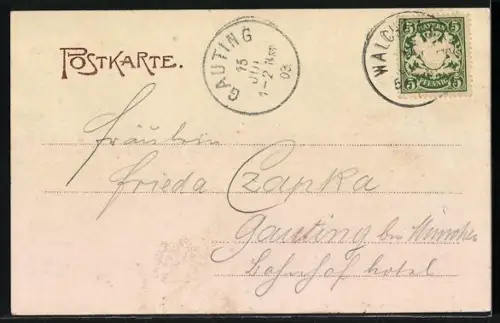 POSTKARTE.
GAUTING
15
JUL
1-2 NM
03.
WALCH
BAYERN
5 5
PFENNIG
5 5
Fräulein
Frieda Czapka
Gauting bei München
Bahnhof hotel